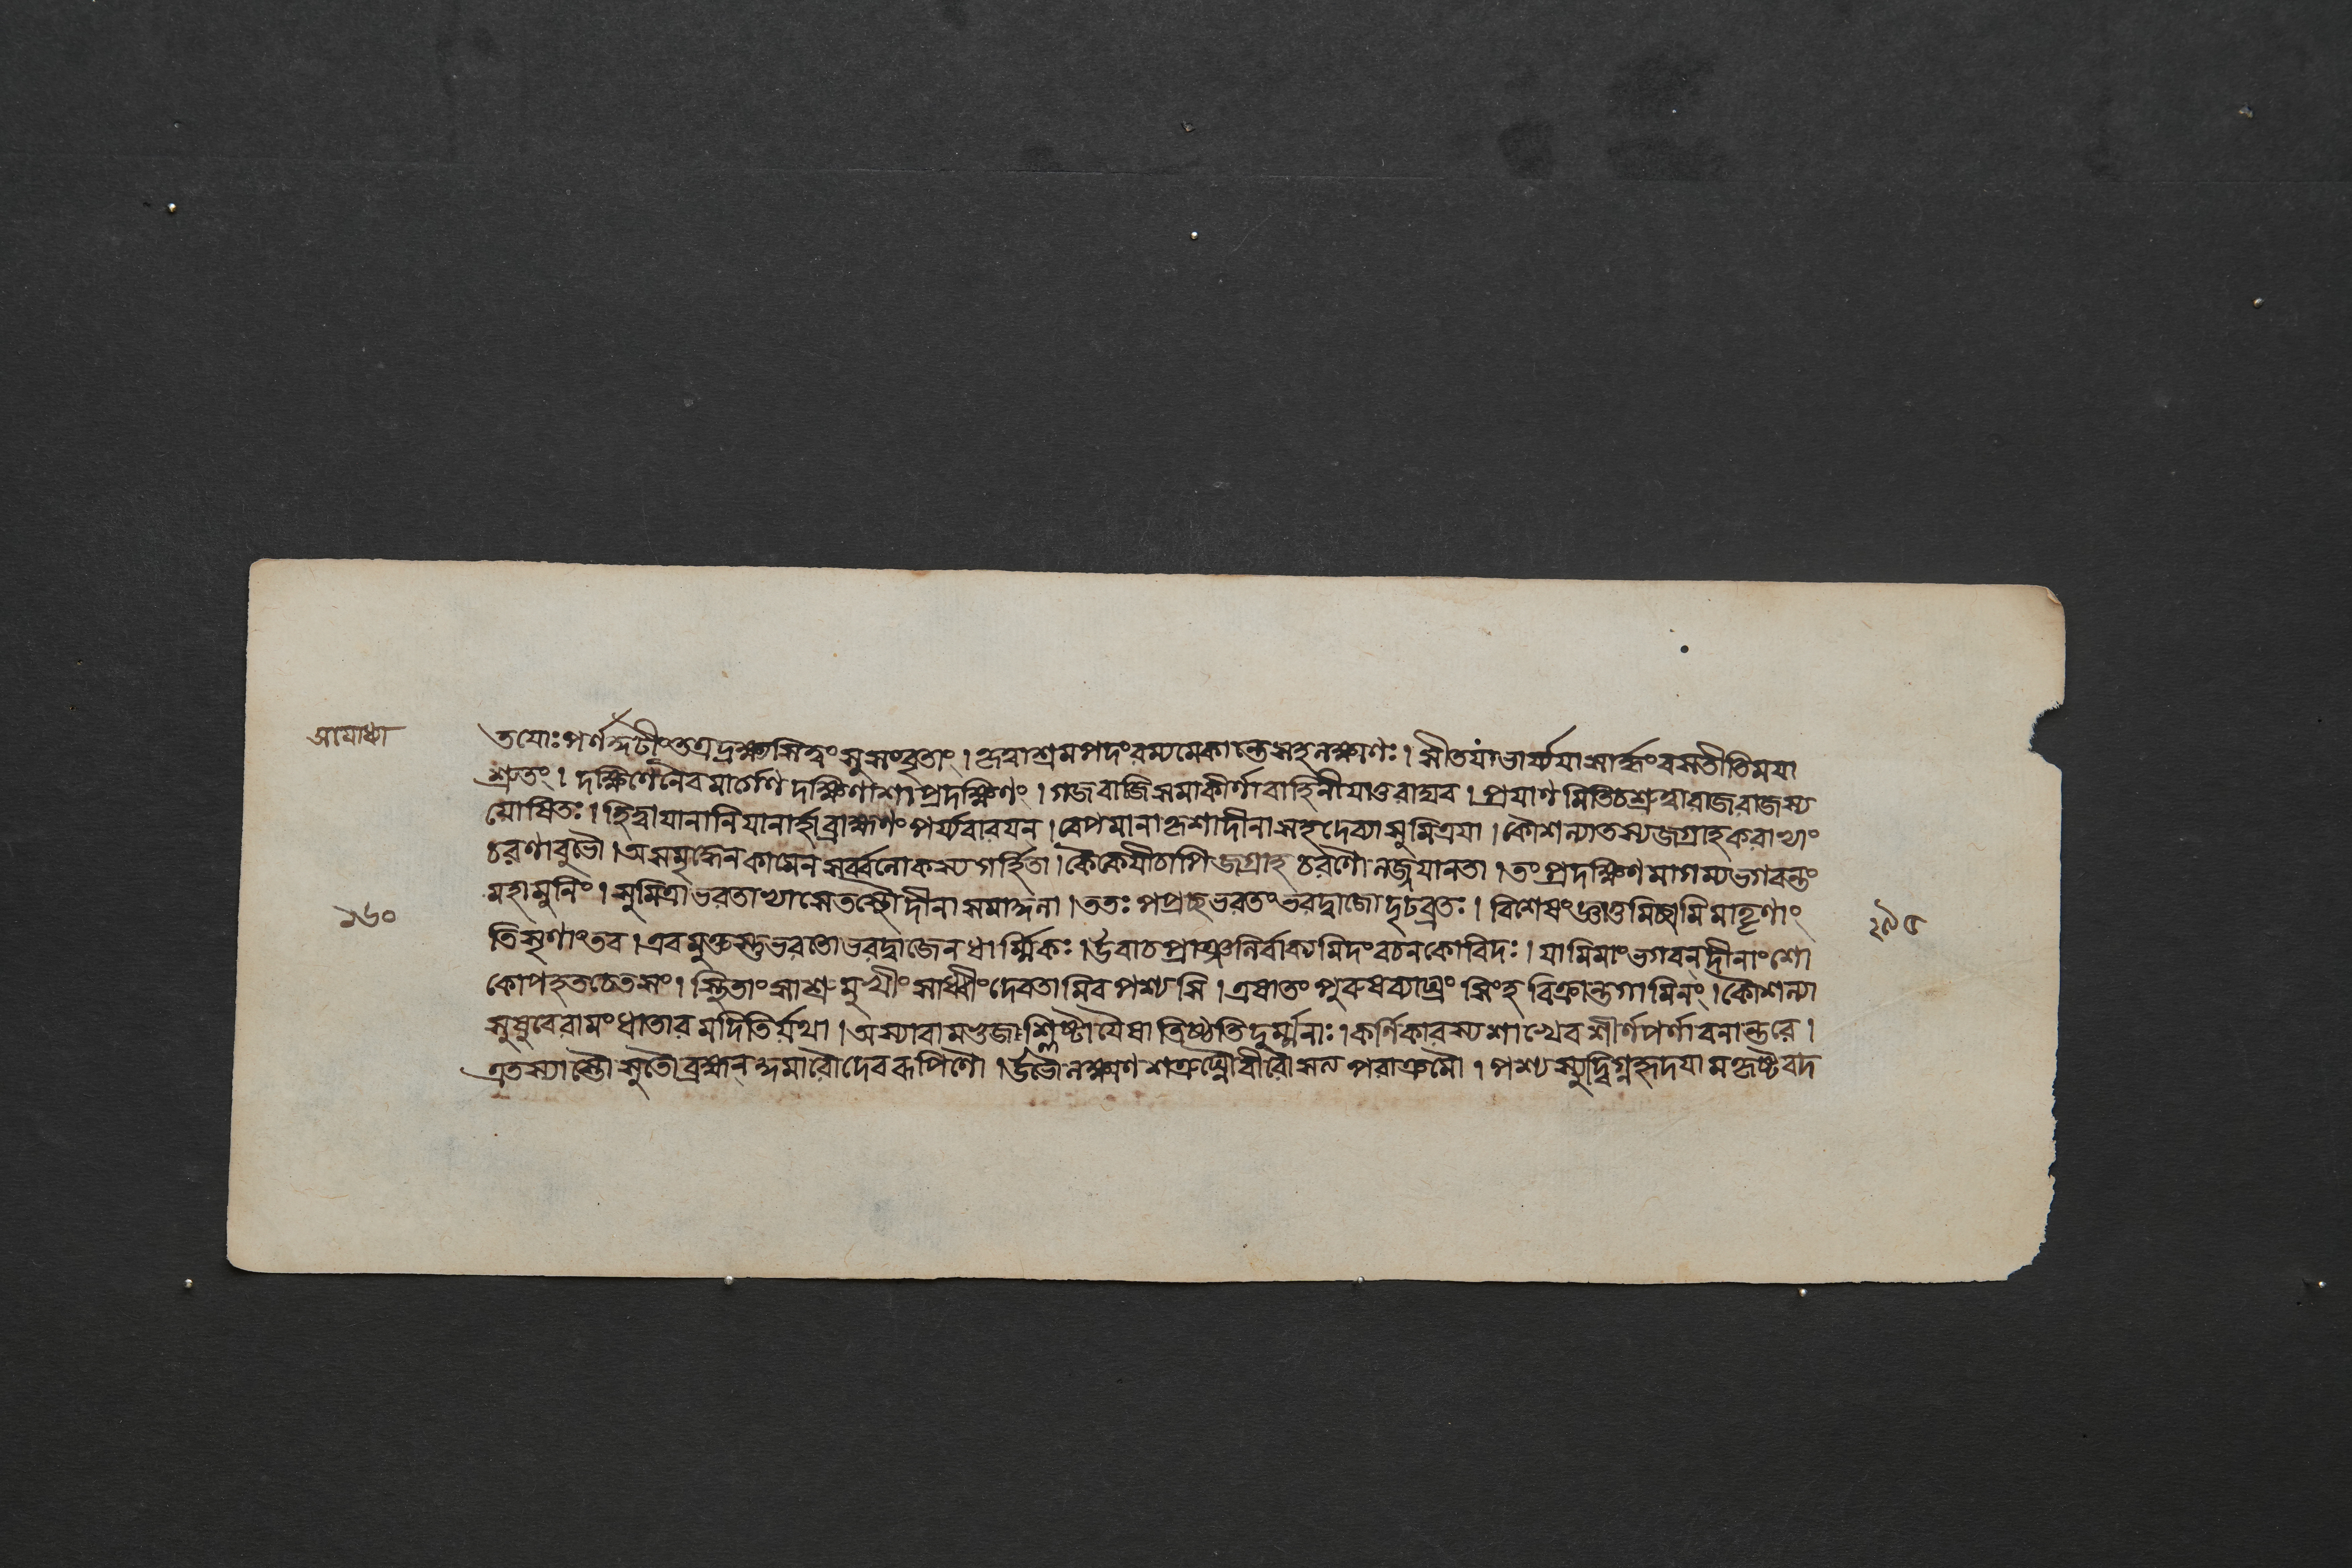 অযোধ্যা
তযোঃ পর্ণকুটীং তত্র দ্রক্ষ্যসি ত্বং সুসংবৃতাং । কৃত্বাশ্রমপদং রম্যমেকান্তে সহলক্ষ্মণঃ । সীতযা ভার্য্যযা সার্দ্ধং বসতীতি মযা
শ্রুতং । দক্ষিণেনৈব মার্গেণ দক্ষিণাশাং প্রদক্ষিণং । গজবাজিসমাকীর্ণা বাহিনী যাতু রাঘব । প্রযাণমিতি চ শ্রুত্বা রাজরাজস্য
যোষিতঃ । হিত্বা যানানি যানার্হা ব্রাহ্মণং পর্য্যবারযন্ । বেপমানা কৃশা দীনা সহ দেব্যা সুমিত্রযা । কৌশল্যা তস্য জগ্রাহ করাভ্যাং
চরণাবুভৌ । অসমৃদ্ধেন কামেন সর্ব্বলোকস্য গর্হিতা । কৈকেযী চাপি জগ্রাহ চরণৌ লজ্জযানতা । তং প্রদক্ষিণমাগম্য ভগবন্তং
মহামুনিং । সুমিত্রা ভরতাভ্যাসে তস্থৌ দীনা সমাঙ্গনা । ততঃ পপ্রচ্ছ ভরতং ভরদ্বাজো দৃঢব্রতঃ । বিশেষং জ্ঞাতুমিচ্ছামি মাতৄণাং
১৬০
২৯৫
তিসৃণাং তব । এবমুক্তস্তু ভরতো ভরদ্বাজেন ধার্ম্মিকঃ । উবাচ প্রাঞ্জলির্বাক্যমিদং বচনকোবিদঃ । যামিমাং ভগবন্ দীনাং শো
কোপহতচেতসং । স্থিতাং সাশ্রুমুখীং সাধ্বীং দেবতামিব পশ্যসি । এষা তং পুরুষব্যাঘ্রং সিংহবিক্রান্তগামিনং । কৌশল্যা
সুষুবে রামং ধাতারমদিতির্যথা । অস্যা বামভুজাশ্লিষ্টা যৈষা তিষ্ঠতি দুর্ম্মনাঃ । কর্ণিকারস্য শাখেব শীর্ণপর্ণা বনান্তরে ।
এতস্যাস্তৌ সুতৌ ব্রহ্মন্ কুমারৌ দেবরূপিণৌ । উভৌ লক্ষ্মণশত্রুঘ্নৌ বীরৌ সত্যপরাক্রমৌ । পশ্যস্যুদ্বিগ্নহৃদযামহৃষ্টবদ